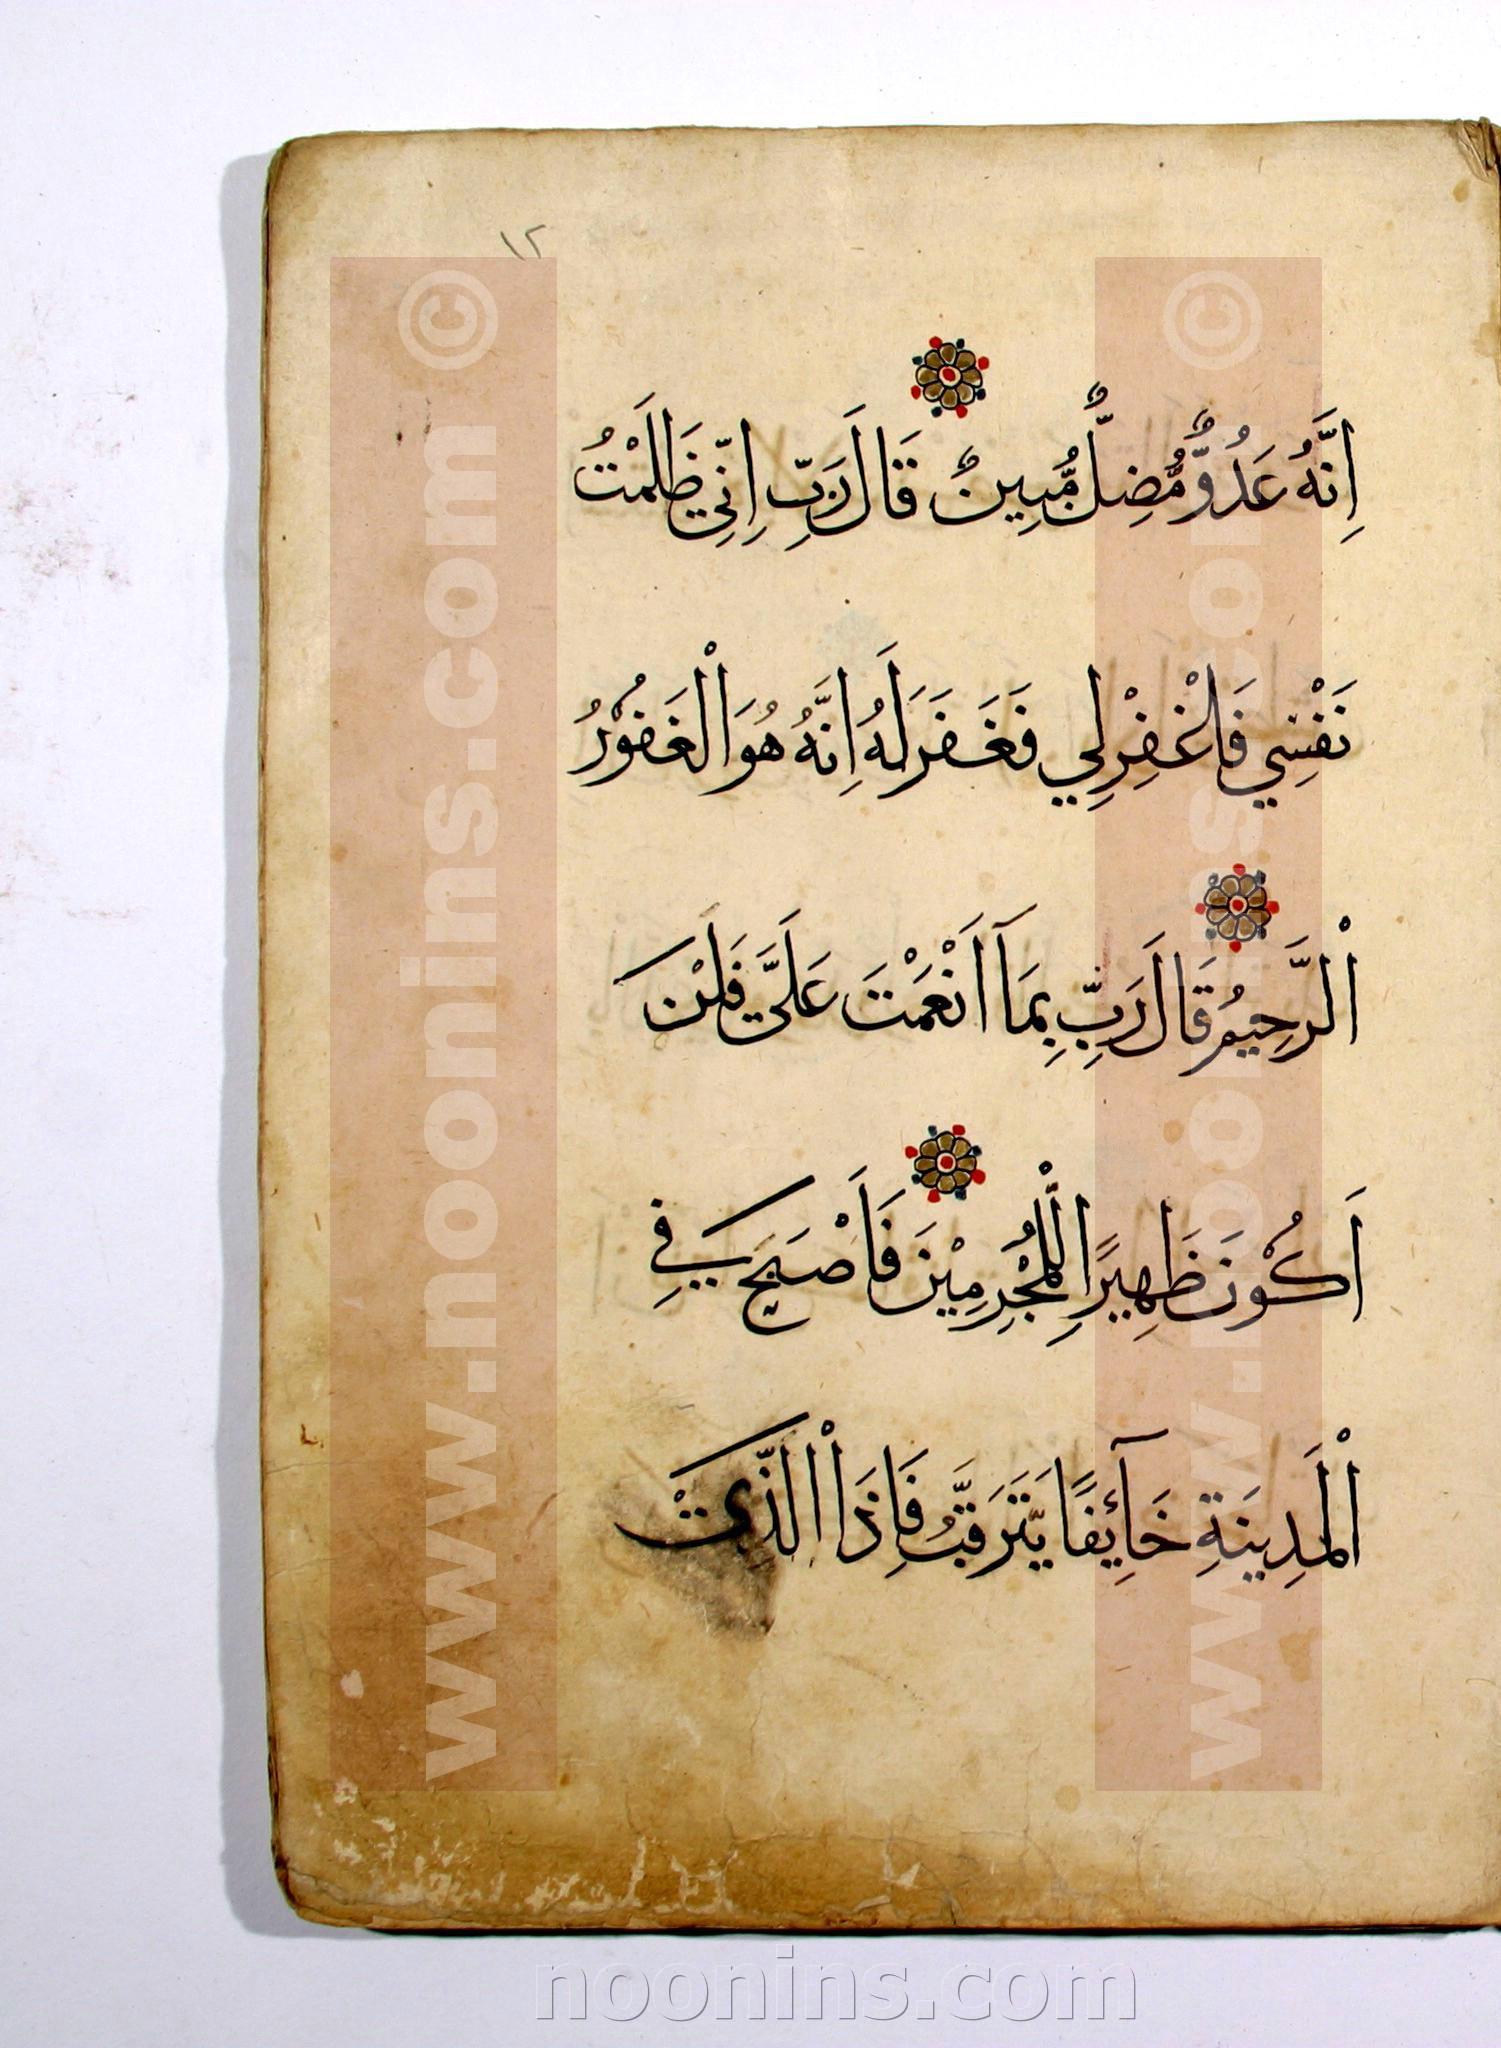 ١٢
اِنَّهُ عَدُوٌّ مُّضِلٌّ مُّبِينٌ قَالَ رَبِّ اِنِّي ظَلَمْتُ
نَفْسِي فَاغْفِرْ لِي فَغَفَرَ لَهُ اِنَّهُ هُوَ الْغَفُوْرُ
الْرَّحِيمُ قَالَ رَبِّ بِمَآ اَنْعَمْتَ عَلَيَّ فَلَنْ
اَكُوْنَ ظَهِيرًا لِّلْمُجْرِمِيْنَ فَاَصْبَحَ فِي
الْمَدِينَةِ خَآئِفًا يَّتَرَقَّبُ فَاِذَا الَّذِي
www.noonins.com ©
www.noonins.com ©
noonins.com